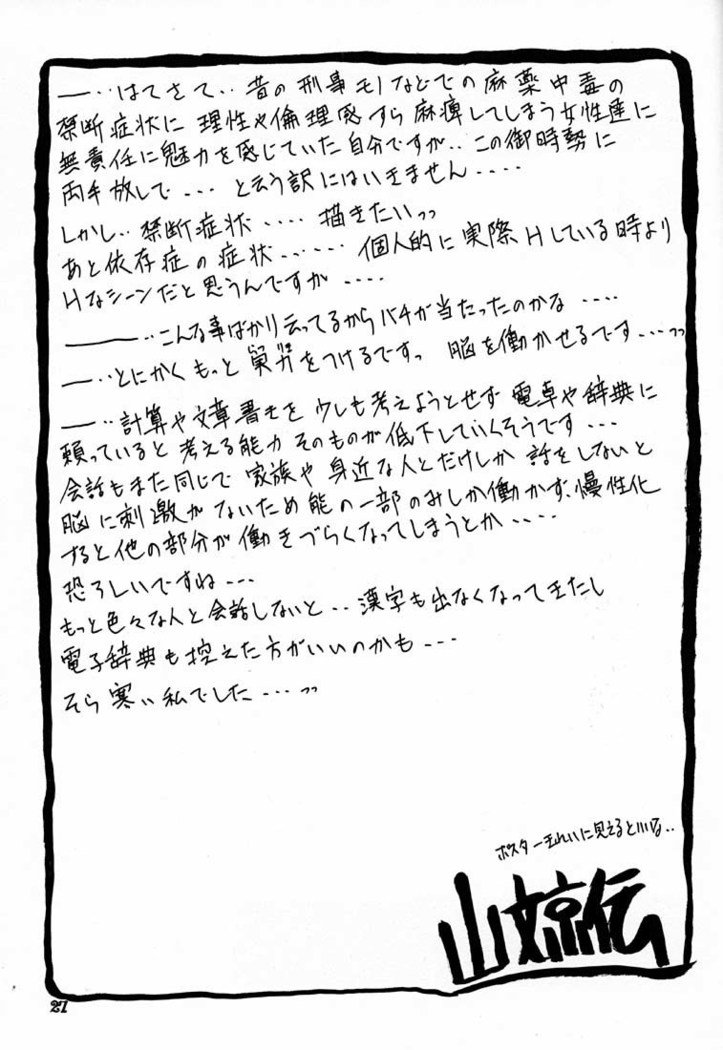 ―‥はてさて‥昔の刑事モノなどでの麻薬中毒の
禁断症状に理性や倫理感すら麻痺してしまう女性達に
無責任に魅力を感じていた自分ですが‥この御時勢に
両手放しで‥‥と云う訳にはいきません‥‥
しかし‥禁断症状‥‥描きたいッッ
あと依存症の症状‥‥‥個人的に実際Hしている時より
Hなシーンだと思うんですが‥‥
―――‥こんな事ばかり云ってるからバチが当たったのかな‥‥
―‥とにかくもっと をつけるですっ 脳を働かせるです‥‥ッッ
―‥計算や文章書きを少しも考えようとせず電卓や辞典に
頼っていると考える能力そのものが低下していくそうです‥‥
会話もまた同じで家族や身近な人とだけしか話をしないと
脳に刺激がないため能の一部のみしか働かず、慢性化
すると他の部分が働きづらくなってしまうとか‥‥
恐ろしいですね‥‥
もっと色々な人と会話しないと‥漢字も出なくなってきたし
電子辞典も控えた方がいいのかも‥‥
そら寒い私でした‥‥ッッ
ポスターきれいに見えるといいな‥
山文京伝
27